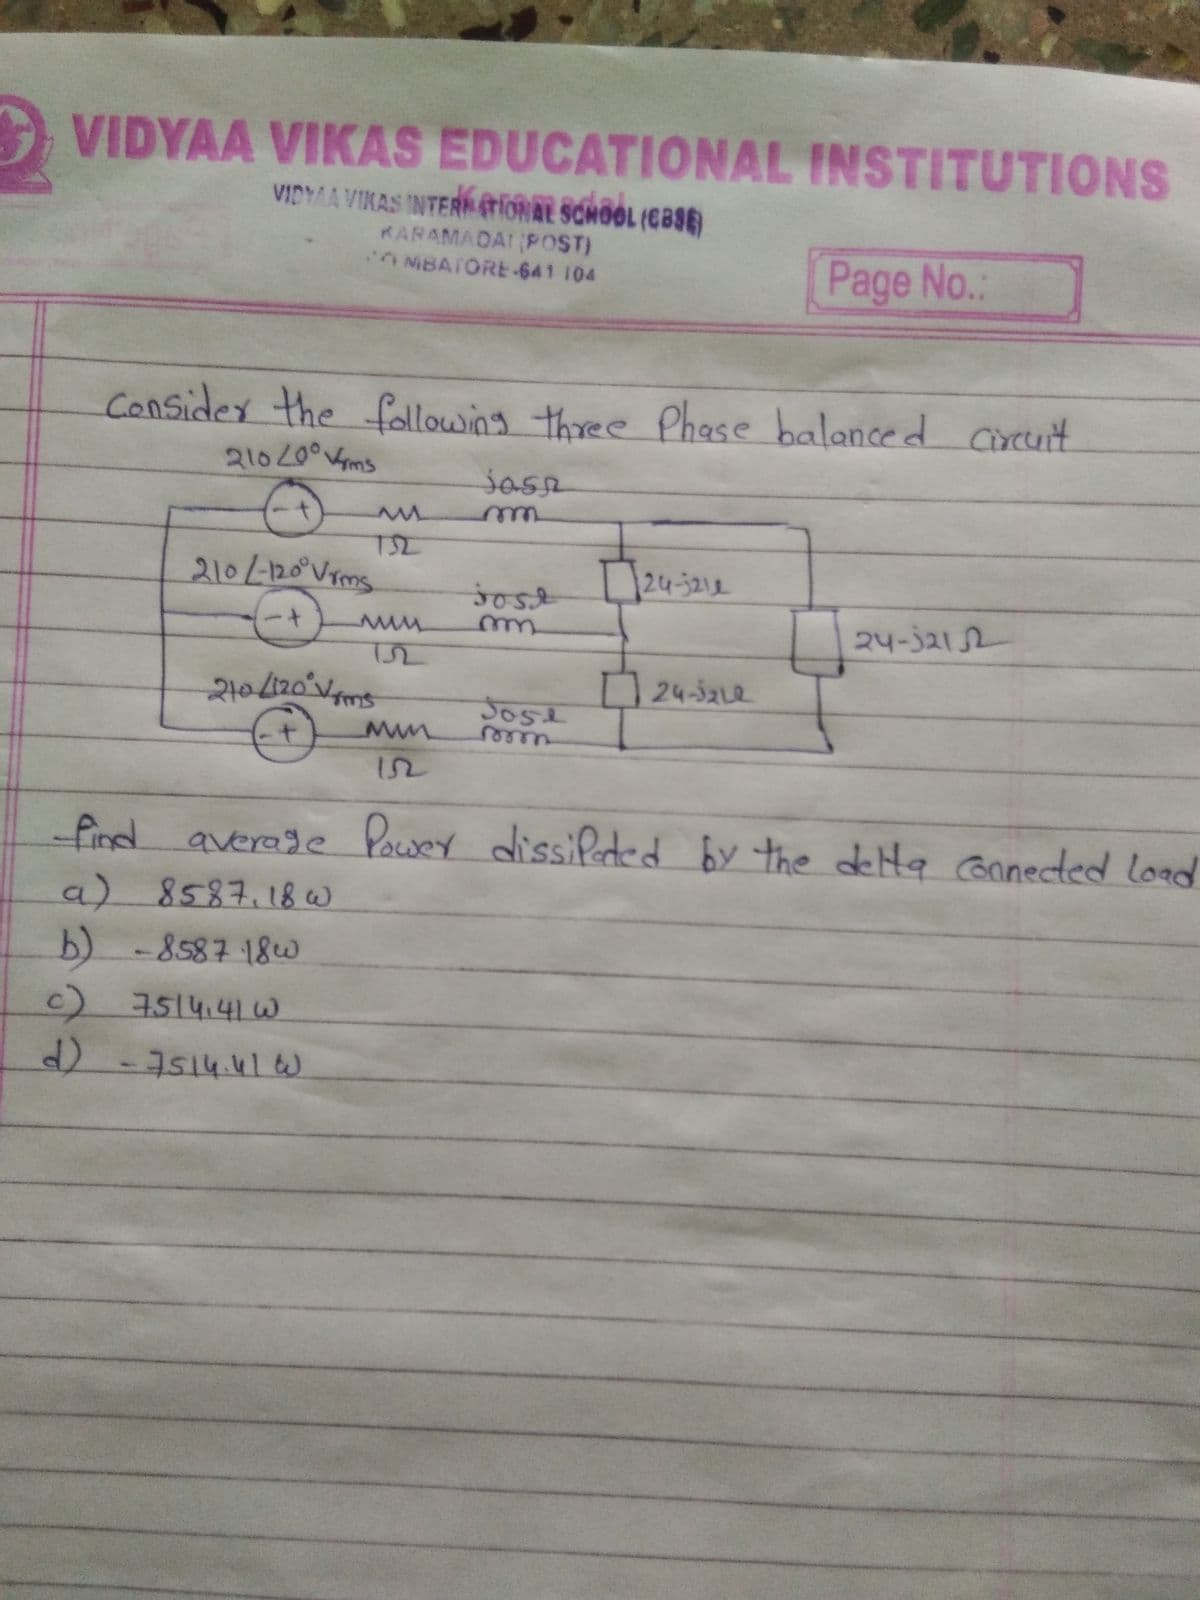 VIDYAA VIKAS EDUCATIONAL INSTITUTIONS
Karamadai
VIDYAA VIKAS INTERNATIONAL SCHOOL (CBSE)
KARAMADAI (POST)
COIMBATORE-641 104
Page No.:
Consider the following three Phase balanced circuit
210∠0° Vrms
j0.5Ω
1Ω
210∠-120° Vrms
j0.5Ω
24-j21Ω
1Ω
24-j21Ω
210∠120° Vrms
j0.5Ω
24-j21Ω
1Ω
find average Power dissipated by the delta connected load
a) 8587.18 W
b) -8587.18W
c) 7514.41 W
d) -7514.41 W